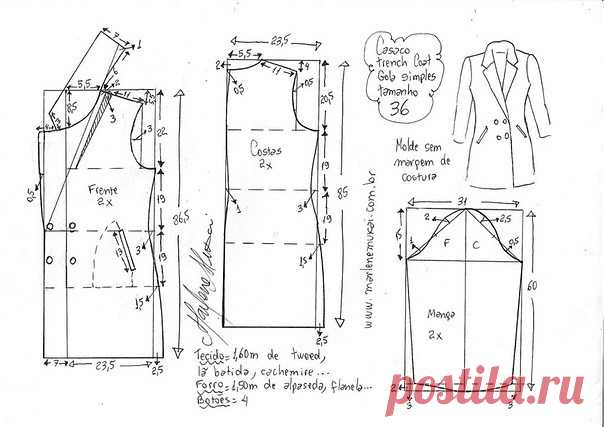 Casaco
trench Coat
Gola simples
tamanho
36
Molde sem
margem de
costura
Frente
2x
7
1
6
2
5,5
11
3
1,5
8,5
3
22
4
3
0,5
19
86,5
13
3
19
1,5
7
23,5
2,5
Costas
2x
23,5
2
5,5
4
11
0,5
0,5
20,5
3
19
1
3
85
19
1,5
2,5
www.marlenemukai.com.br
Marlene Mukai
31
2
2,5
15
F
C
1
0,5
60
Manga
2x
2
2
3
3
Tecido= 1,60m de tweed,
lã batida, cachemire...
Forro= 1,50m de alpaseda, flanela...
Botões= 4
postila.ru